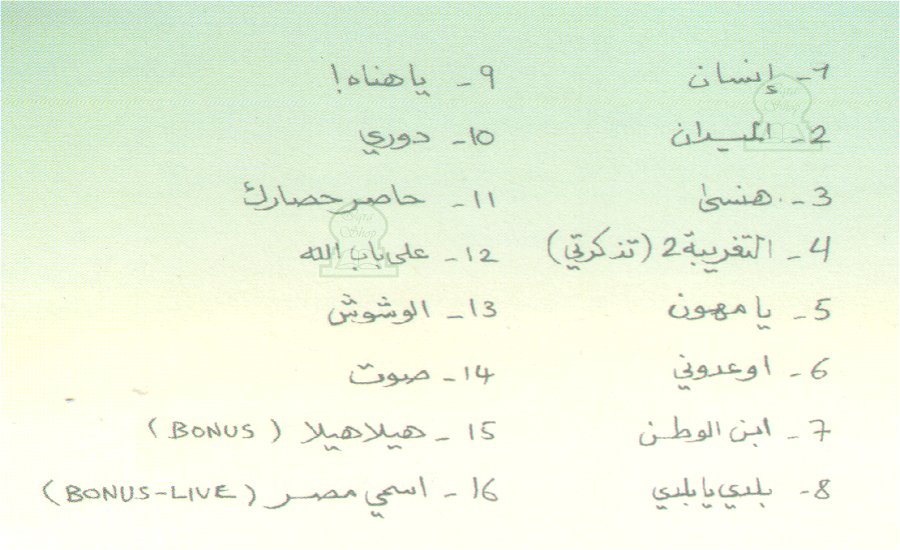 1- إنسان
2- الميدان
3- هنسى
4- التغريبة 2 (تذكرتي)
5- يا مهون
6- اوعدوني
7- ابن الوطن
8- بلدي يا بلدي
9- ياهناه!
10- دوري
11- حاصر حصارك
12- على باب الله
13- الوشوش
14- صوت
15- هيلا هيلا (BONUS)
16- اسمي مصر (BONUS-LIVE)
Iqra Shop
Iqra Shop